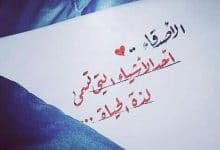 الأصدقاء ..
أحد الأشياء التي تسمى
لذة الحياة ...